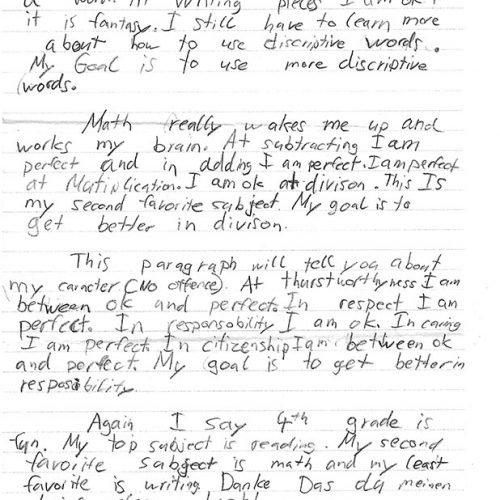 a at writing pieces I am ok
it is fantasy. I still have to learn more
about how to use discriptive words.
My Goal is to use more discriptive
words.
Math really wakes me up and
works my brain. At subtracting I am
perfect and in adding I am perfect. I am perfect
at Mutiplication. I am ok at divison. This Is
my second favorite subject. My goal is to
get better in divison.
This paragraph will tell you about
my caracter (No offence). At thurstworthyness I am
between ok and perfect. In respect I am
perfect. In responsobility I am ok. In caring
I am perfect In citizenship I am between ok
and perfect. My goal is to get better in
resposibility.
Again I say 4th grade is
fun. My top subject is reading. My second
favorite subject is math and my least
favorite is writing. Danke Das du meinen